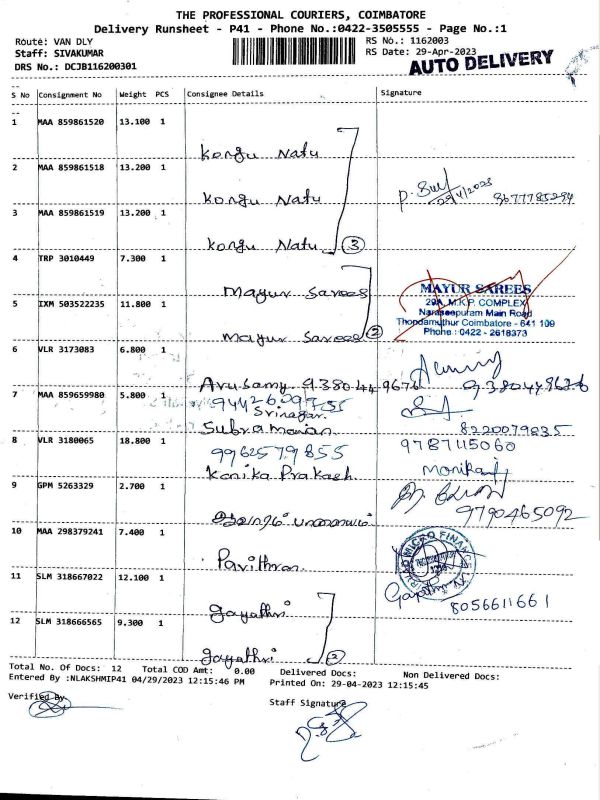 THE PROFESSIONAL COURIERS, COIMBATORE
Delivery Runsheet - P41 - Phone No.:0422-3505555 - Page No.:1
Route: VAN DLY RS No.: 1162003
Staff: SIVAKUMAR RS Date: 29-Apr-2023
DRS No.: DCJB116200301 AUTO DELIVERY
S No Consignment No Weight PCS Consignee Details Signature
1 MAA 859861520 13.100 1
Kongu Natu
2 MAA 859861518 13.200 1
Kongu Natu 29/4/2023 8677785294
3 MAA 859861519 13.200 1
Kongu Natu 3
4 TRP 3010449 7.300 1
Mayur Sarees MAYUR SAREES
29A, M.K.P. COMPLEX
5 IXM 503522235 11.800 1 Naraseepuram Main Road
Thondamuthur Coimbatore - 641 109
Mayur Sarees 2 Phone : 0422 - 2618373
6 VLR 3173083 6.800 1
Arusamy 9380449676
7 MAA 859659980 5.800 1
Srinagar
Subramanian 8220079835
8 VLR 3180065 18.800 1 9787115060
9962579855
Konika Prakash
9 GPM 5263329 2.700 1
9790465092
10 MAA 298379241 7.400 1
Pavithran
11 SLM 318667022 12.100 1
Gayathri 8056611661
12 SLM 318666565 9.300 1
Gayathri 2
Total No. Of Docs: 12 Total COD Amt: 0.00 Delivered Docs: Non Delivered Docs:
Entered By :NLAKSHMIP41 04/29/2023 12:15:46 PM Printed On: 29-04-2023 12:15:45
Verified By Staff Signature